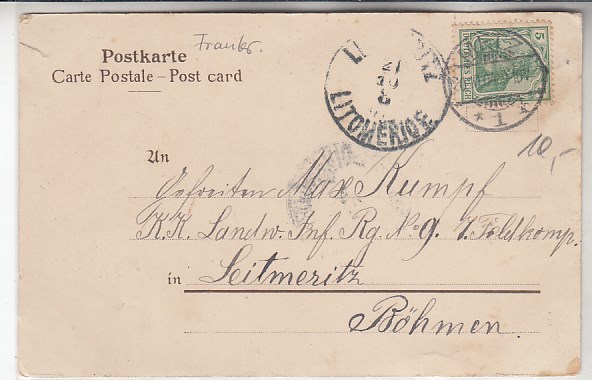 Postkarte
Carte Postale – Post card
LITOMĚŘICE
5
DEUTSCHES REICH
* 1 *
10,-
An
Gefreiten Max Kumpf
K.K. Landw. Inf. Rg. No 9. Feldkomp.
in Leitmeritz
Böhmen.